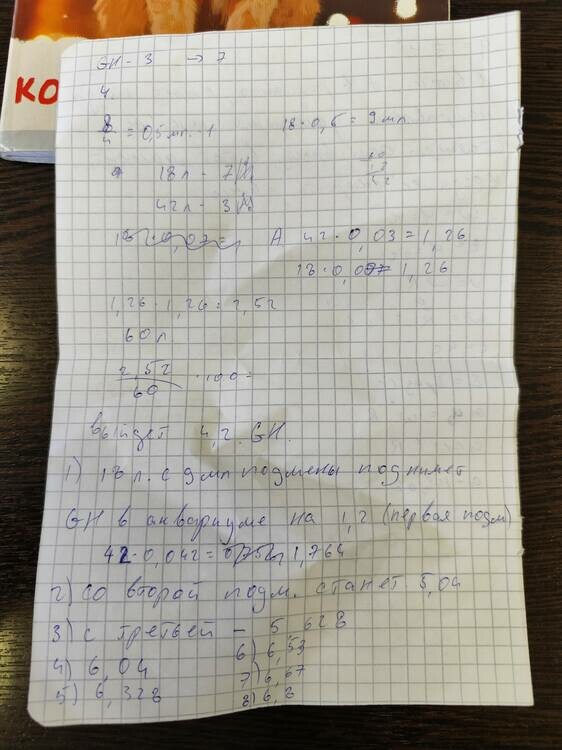 КО
GH - 3 → 7
4.
8/4 = 0,5 мл - 1
18 · 0,5 = 9 мл
18 л - 7
42 л - 3
А 42 · 0,03 = 1,26
18 · 0,07 1,26
1,26 · 1,26 = 2,52
60 л.
2,52/60 · 100 =
выйдет 4,2. GH.
1) 18 л. с 9 мл подмены поднимет
GH в аквариуме на 1,2 (первая подм)
42 · 0,042 = 1,764
2) со второй подм. станет 5,04
3) с третьей - 5,628
4) 6,04
5) 6,328
6) 6,53
7) 6,67
8) 6,8